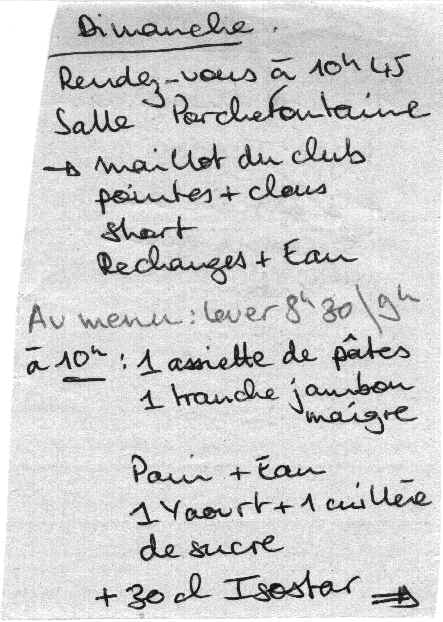 Dimanche.
Rendez-vous à 10h45
Salle Porchefontaine
→ maillot du club
pointes + clous
short
Rechanges + Eau
Au menu : lever 8h30/9h
à 10h : 1 assiette de pâtes
1 tranche jambon
maigre
Pain + Eau
1 Yaourt + 1 cuillère
de sucre
+ 30 cl Isostar ⇒